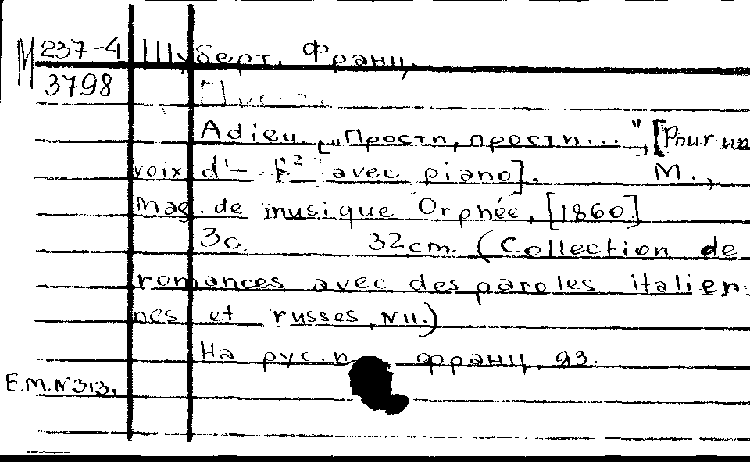 М 237-4 Шуберт, Франц.
3798
Adieu. [„Прости, прости..." [Pour une
voix d'– f² avec piano]. М.,
mag. de musique Orphée, [1860]
3 с. 32 cm. (Collection de
romances avec des paroles italien-
nes et russes, N 11.)
На рус. и франц. яз.
Е.М.N 313.